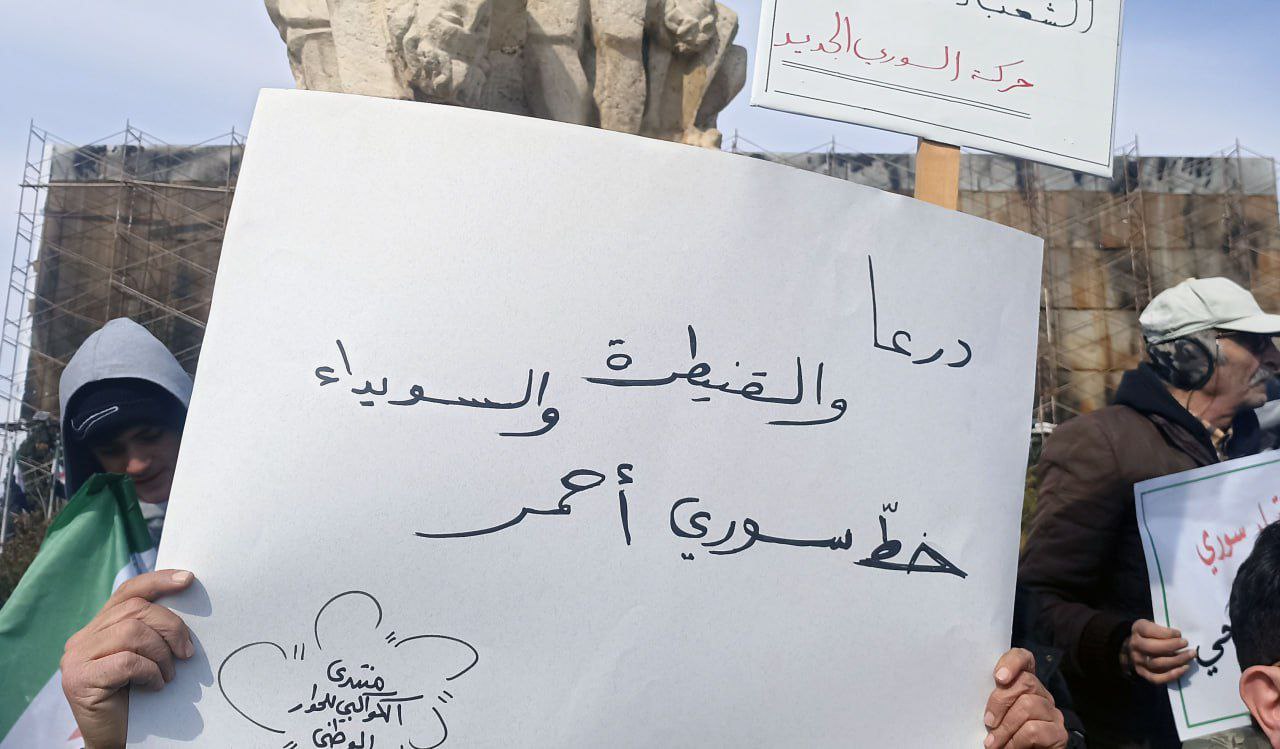 حركة السوري الجديد
درعا
والقنيطرة والسويداء
خطّ سوري أحمر
منتدى
الكواكبي للحوار
الوطني
سوري